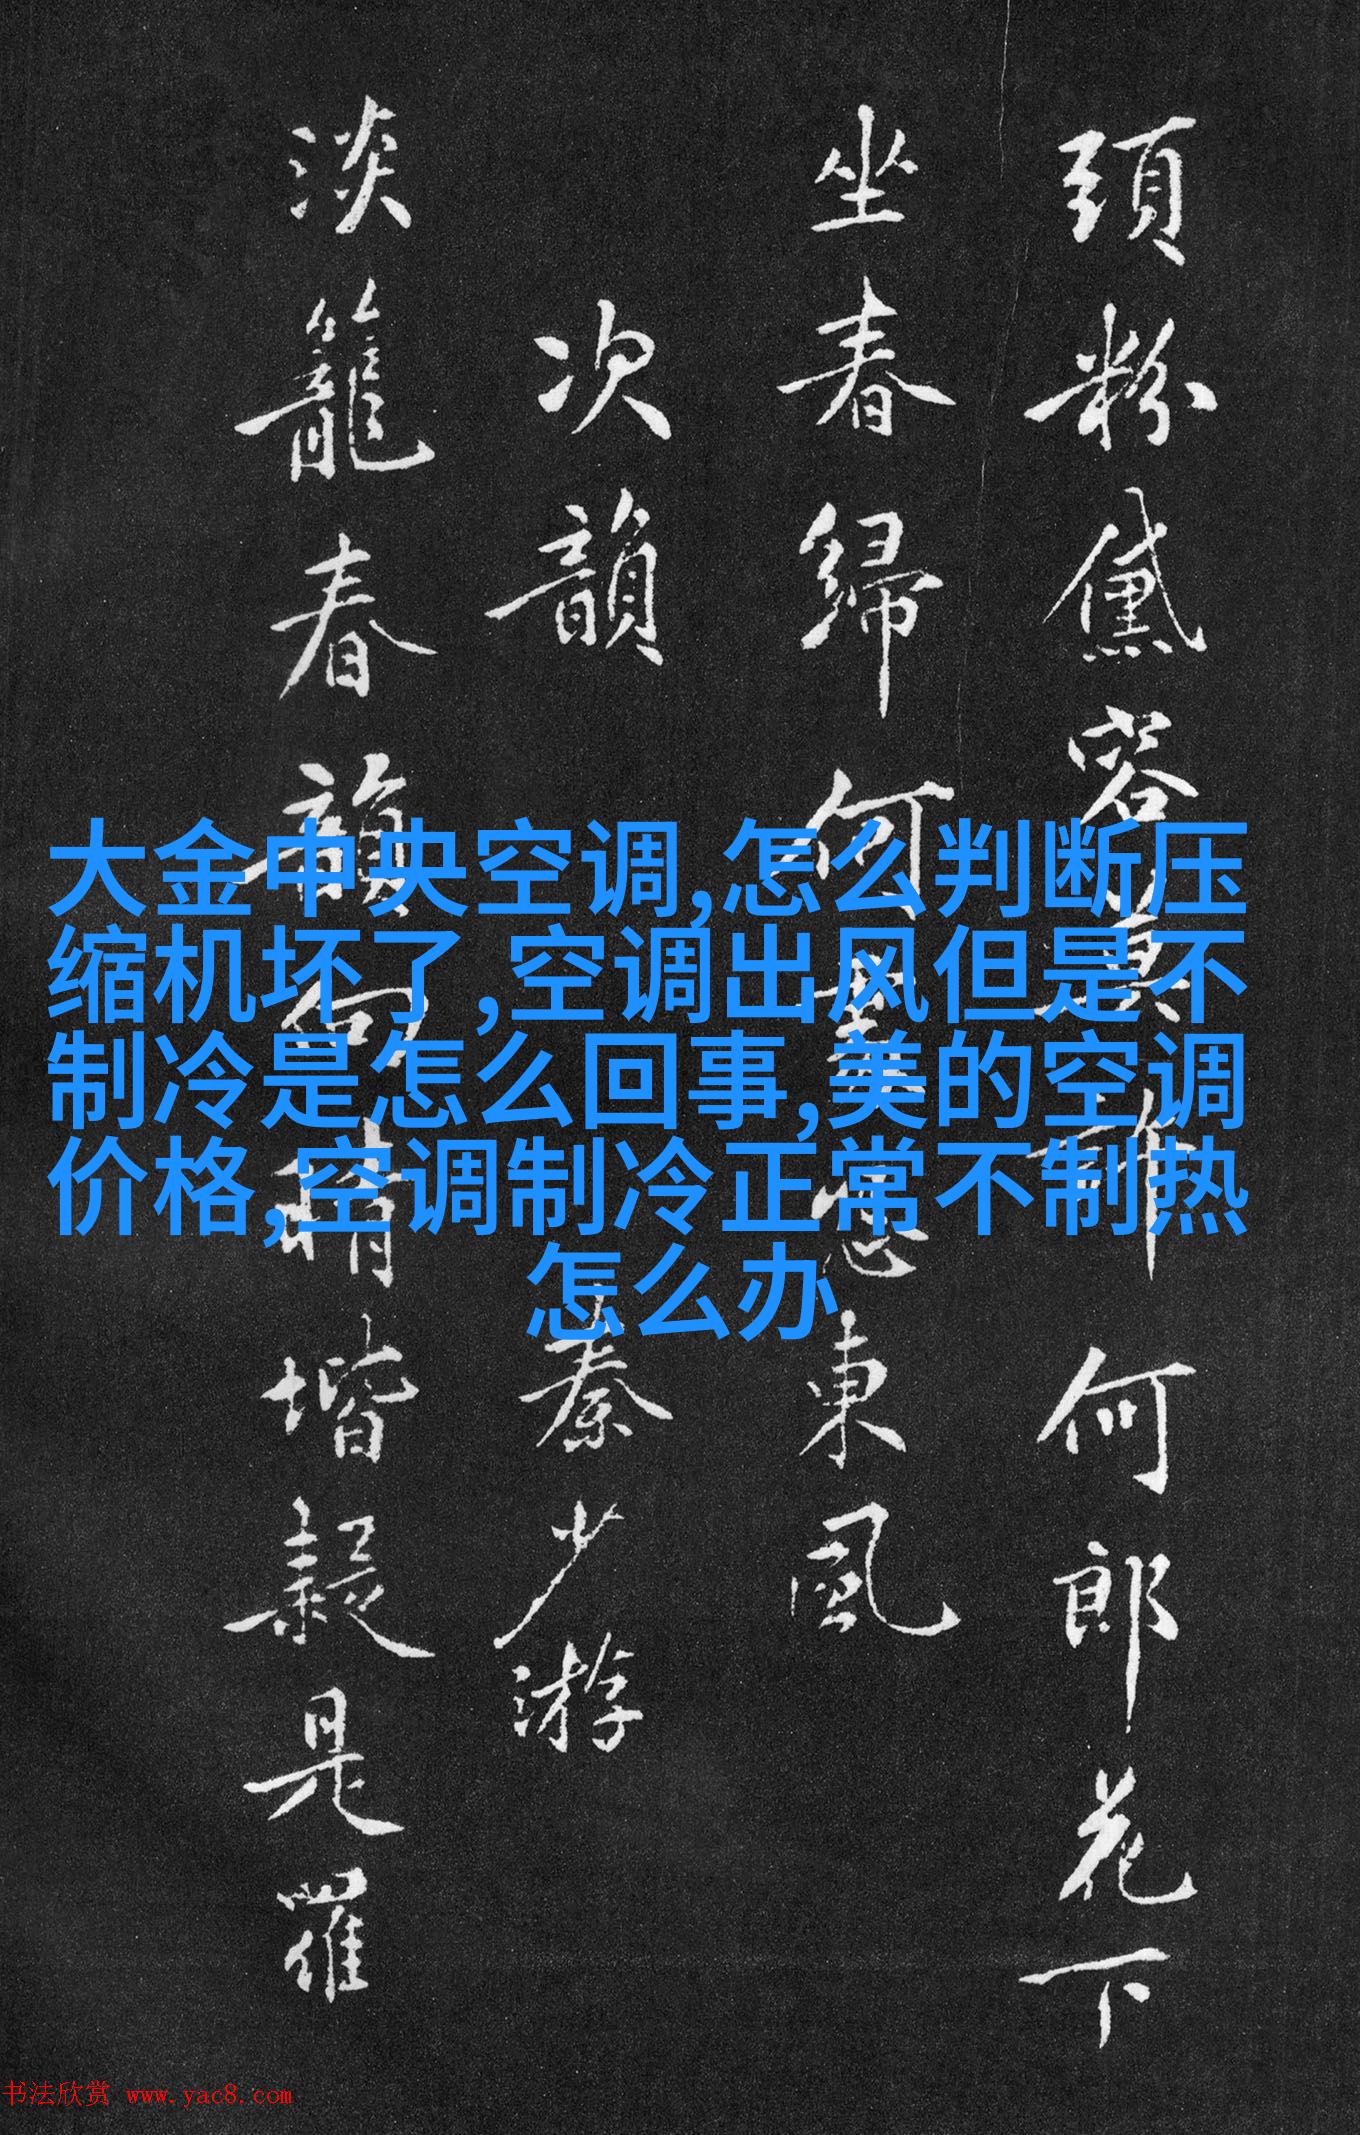 頭粉黛容莫許何郎花下
坐春歸何事怨東風
次韻秦少游
淡籠春韻向晴堦疑是羅
大金中央空调,怎么判断压
缩机坏了,空调出风但是不
制冷是怎么回事,美的空调
价格,空调制冷正常不制热
怎么办
书法欣赏 www.yac8.com